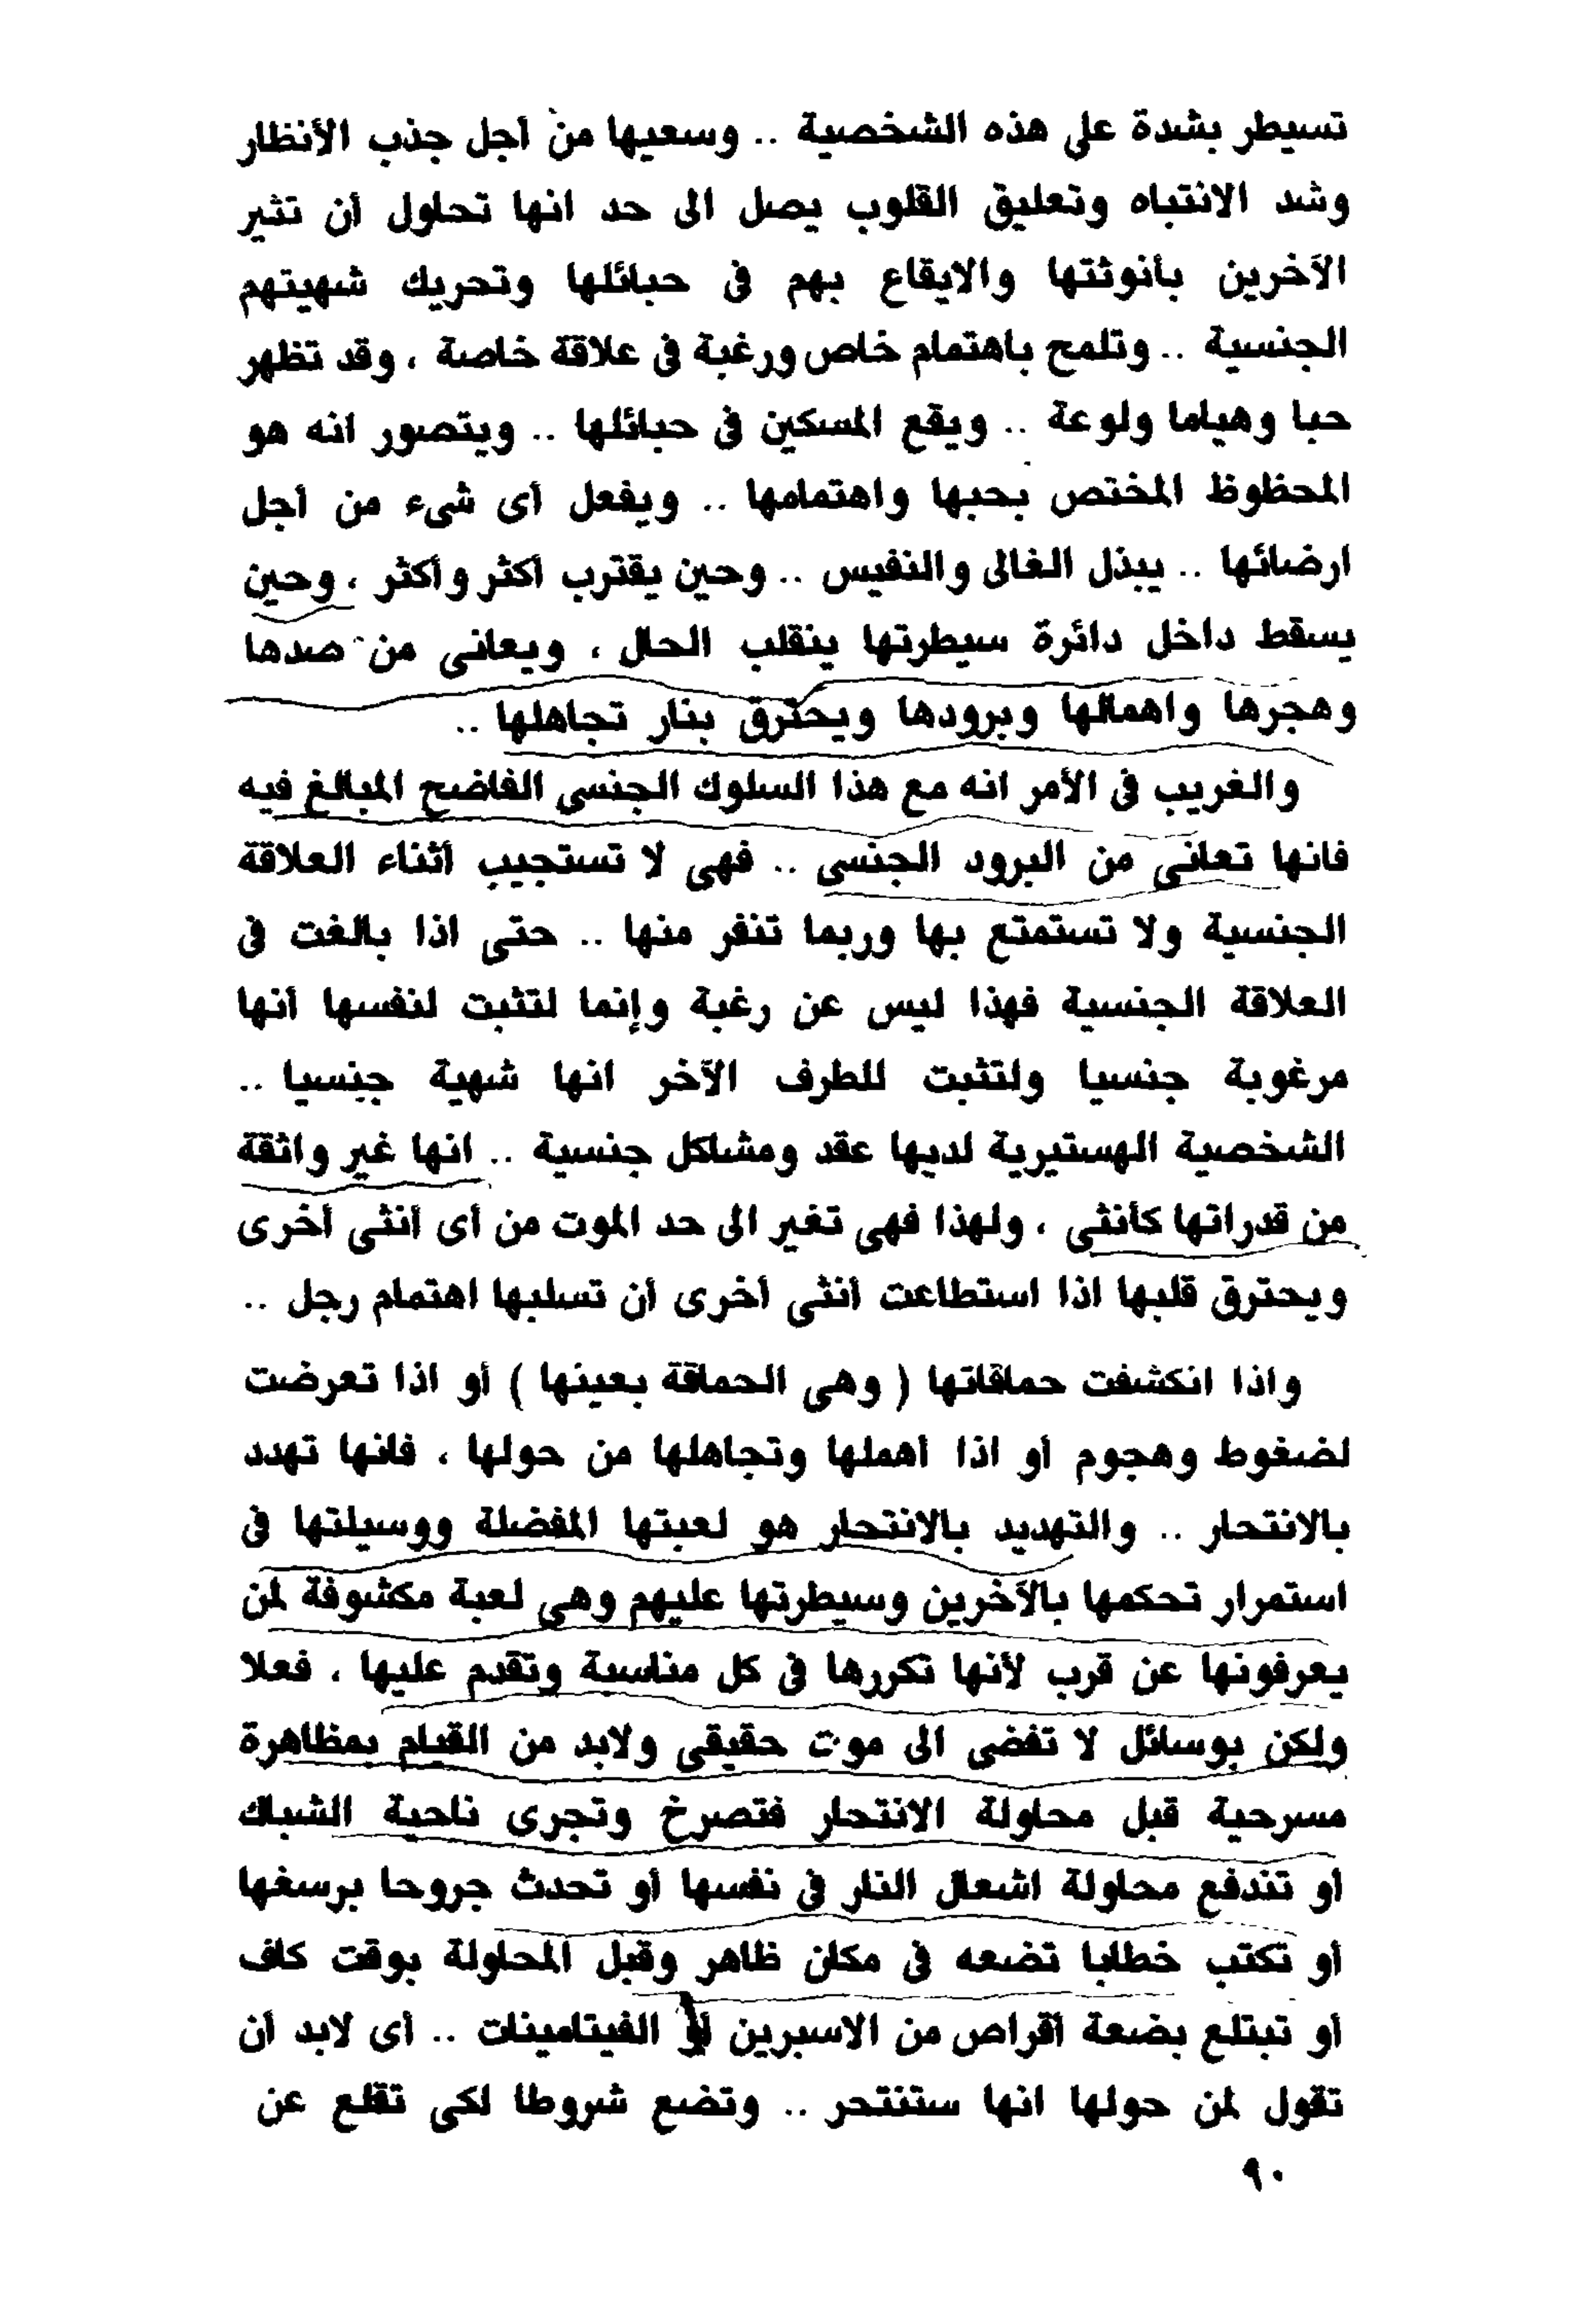 تسيطر بشدة على هذه الشخصية .. وسعيها من أجل جذب الأنظار
وشد الانتباه وتعليق القلوب يصل الى حد انها تحاول أن تثير
الآخرين بأنوثتها والايقاع بهم فى حبائلها وتحريك شهيتهم
الجنسية .. وتلمح باهتمام خاص ورغبة فى علاقة خاصة ، وقد تظهر
حبا وهياما ولوعة .. ويقع المسكين فى حبائلها .. ويتصور انه هو
المحظوظ المختص بحبها واهتمامها .. ويفعل أى شىء من أجل
ارضائها .. يبذل الغالى والنفيس .. وحين يقترب أكثر وأكثر ، وحين
يسقط داخل دائرة سيطرتها ينقلب الحال ، ويعانى من صدها
وهجرها واهمالها وبرودها ويحترق بنار تجاهلها ..
والغريب فى الأمر انه مع هذا السلوك الجنسى الفاضح المبالغ فيه
فانها تعانى من البرود الجنسى .. فهى لا تستجيب أثناء العلاقة
الجنسية ولا تستمتع بها وربما تنفر منها .. حتى اذا بالغت فى
العلاقة الجنسية فهذا ليس عن رغبة وإنما لتثبت لنفسها أنها
مرغوبة جنسيا ولتثبت للطرف الآخر انها شهية جنسيا ..
الشخصية الهستيرية لديها عقد ومشاكل جنسية .. انها غير واثقة
من قدراتها كأنثى ، ولهذا فهى تغير الى حد الموت من أى أنثى أخرى
ويحترق قلبها اذا استطاعت أنثى أخرى أن تسلبها اهتمام رجل ..
واذا انكشفت حماقاتها ( وهى الحماقة بعينها ) أو اذا تعرضت
لضغوط وهجوم أو اذا أهملها وتجاهلها من حولها ، فانها تهدد
بالانتحار .. والتهديد بالانتحار هو لعبتها المفضلة ووسيلتها فى
استمرار تحكمها بالآخرين وسيطرتها عليهم وهى لعبة مكشوفة لمن
يعرفونها عن قرب لأنها تكررها فى كل مناسبة وتقدم عليها ، فعلا
ولكن بوسائل لا تفضى الى موت حقيقى ولابد من القيام بمظاهرة
مسرحية قبل محاولة الانتحار فتصرخ وتجرى ناحية الشباك
أو تندفع محاولة اشعال النار فى نفسها أو تحدث جروحا برسغها
أو تكتب خطابا تضعه فى مكان ظاهر وقبل المحاولة بوقت كاف
أو تبتلع بضعة أقراص من الاسبرين أو الفيتامينات .. أى لابد أن
تقول لمن حولها انها ستنتحر .. وتضع شروطا لكى تقلع عن
٩٠